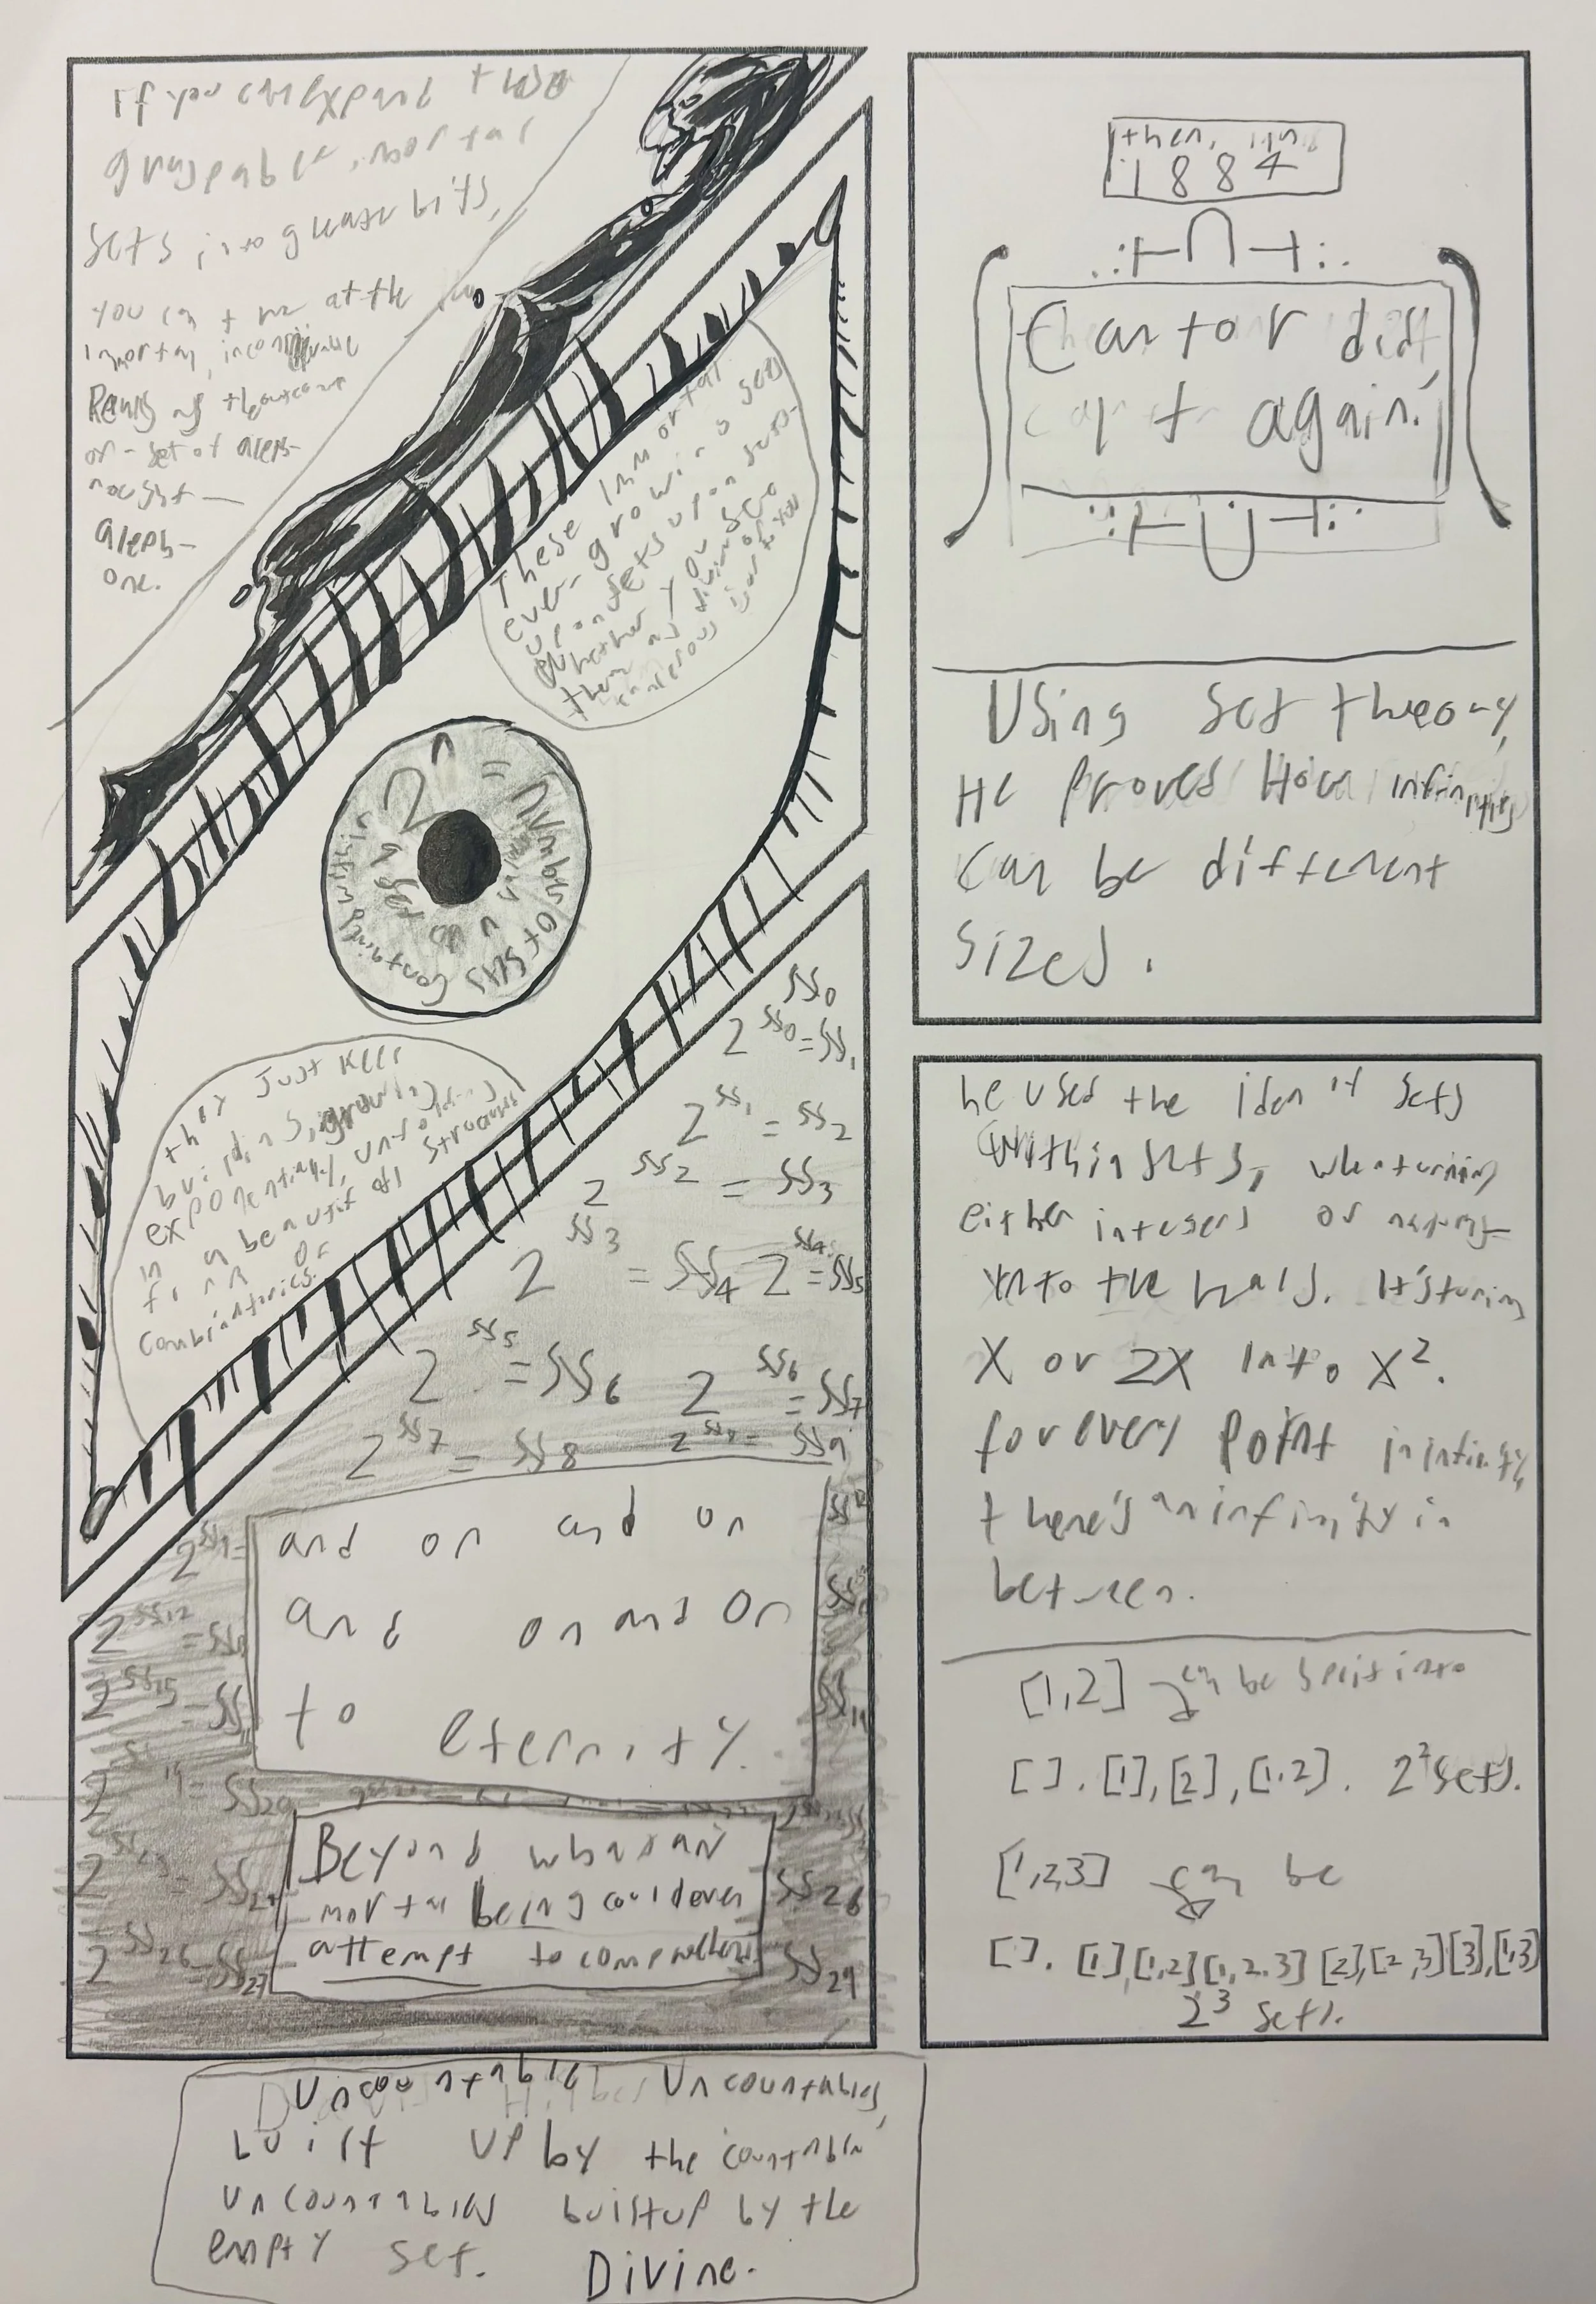 If you can expand those
graspable, mortal
sets into greater bits,
you can t at the
immortal,
Reality
or - set of aleph-
nought —
aleph-
one.
These immortal
ever-growing sets
upon sets upon sets-
whether you see
them as divine or
cancerous is up to you
2^n = Number of sets
containing
a set
they just keep
building, growing
exponentially, unfolding
in a beautiful
form of
combinatorics.
ﬡ₀
2^ﬡ₀ = ﬡ₁
2^ﬡ₁ = ﬡ₂
2^ﬡ₂ = ﬡ₃
2^ﬡ₃ = ﬡ₄ 2^ﬡ₄ = ﬡ₅
2^ﬡ₅ = ﬡ₆ 2^ﬡ₆ = ﬡ₇
2^ﬡ₇ = ﬡ₈ 2^ﬡ₈ = ﬡ₉
and on and on
and on and on
to eternity.
2^ﬡ₂₆ = ﬡ₂₇
ﬡ₂₆
ﬡ₂₉
Beyond what any
mortal being could ever
attempt to comprehend
Uncountable Uncountables,
built up by the countable
uncountables built up by the
empty set. Divine.
then, in
1884
Cantor did
it again.
Using set theory,
He proved How infinities
can be different
sizes.
he used the idea of sets
Within sets, when turning
either integers or
into the reals. It's turning
X or 2X into X².
for every point in infinity,
there's an infinity in
between.
[1,2] can be split into
[ ], [1], [2], [1,2]. 2² sets.
[1,2,3] can be
[ ], [1], [1,2] [1,2,3] [2], [2,3] [3], [1,3]
2³ sets.